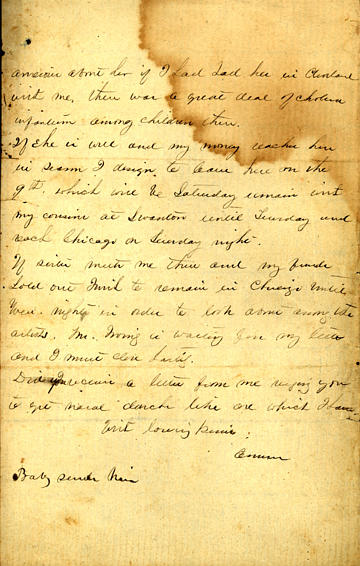 about her if I had had her in Cleveland
with me, there was a great deal of cholera
infantum among children there.
If she is well and my money reaches here
in season I design to leave here on the
9th, which will be Saturday remain with
my cousins at Swanton until Tuesday and
reach Chicago on Tuesday night.
If sister meets me there and my funds
hold out I wish to remain in Chicago until
night in order to look about among the
artists. Mr. is waiting for my letter
and I must close hastily.
receive a letter from me urging you
to get nasal douche like one which I have
With loving kisses,
Emma
Baby sends